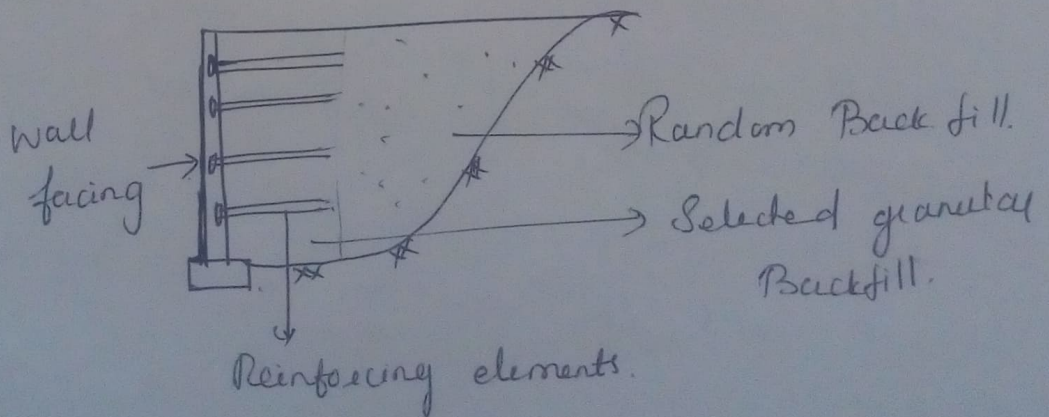 Wall
facing
Random Backfill.
Selected granular
Backfill.
Reinforcing elements.